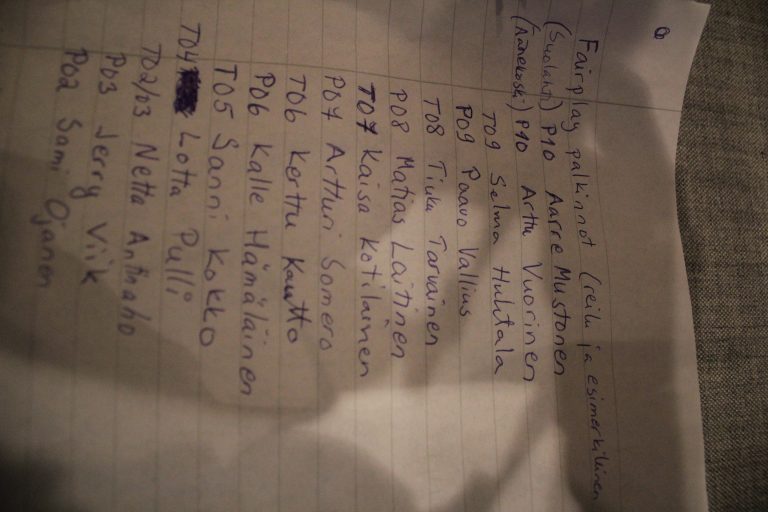 Fairplay palkinnot (reilu ja esimerkillinen
(Suolahti) P10 Aarre Mustonen
(Äänekoski) P10 Arttu Vuorinen
T09 Selma Huhtala
P09 Paavo Vallius
T08 Tiuku Tarvainen
P08 Matias Laitinen
T07 Kaisa Kotilainen
P07 Artturi Somero
T06 Kerttu Kautto
P06 Kalle Hämäläinen
T05 Sanni Kokko
T04 Lotta Pulli
T02/03 Netta Anttaho
P03 Jerry Viik
P02 Sami Ojanen